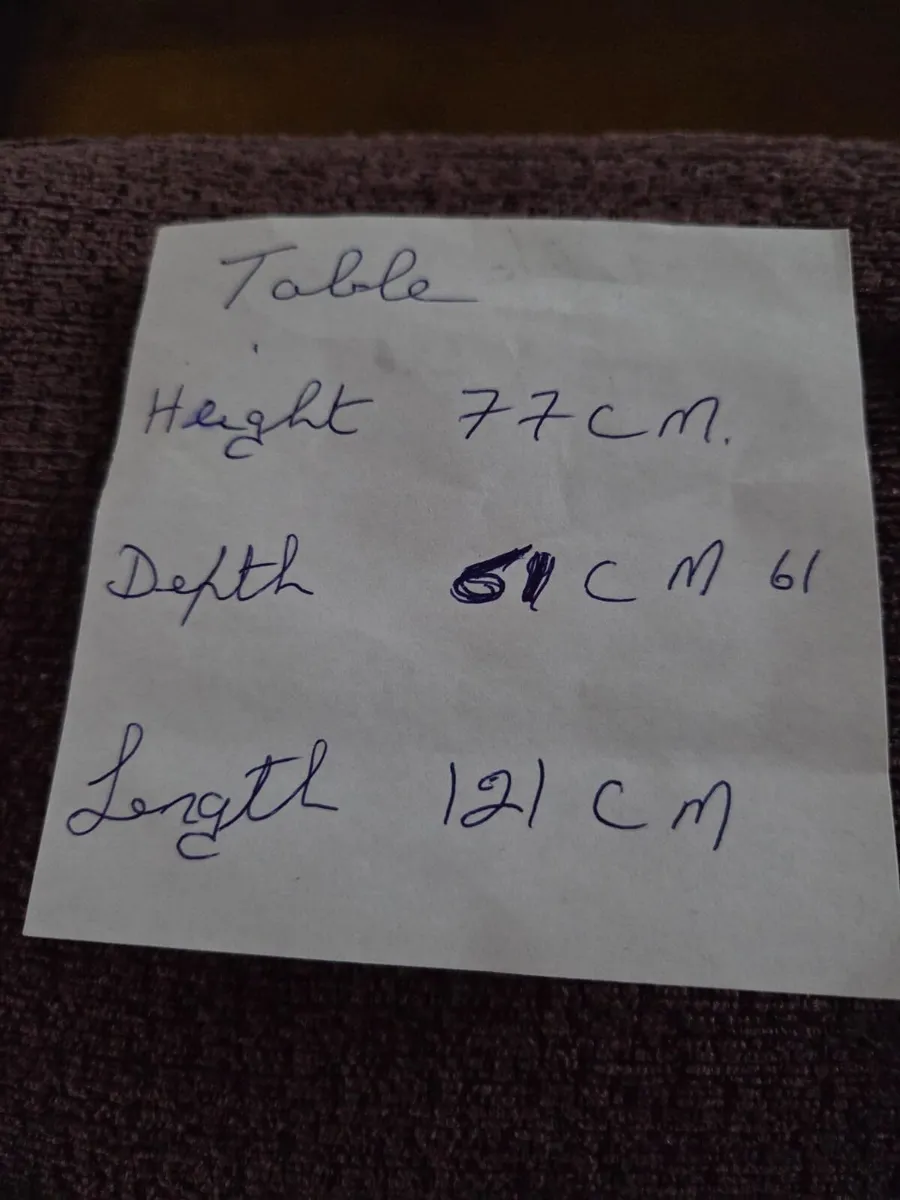 Table
Height 77 CM.
Depth 61 CM 61
Length 121 CM